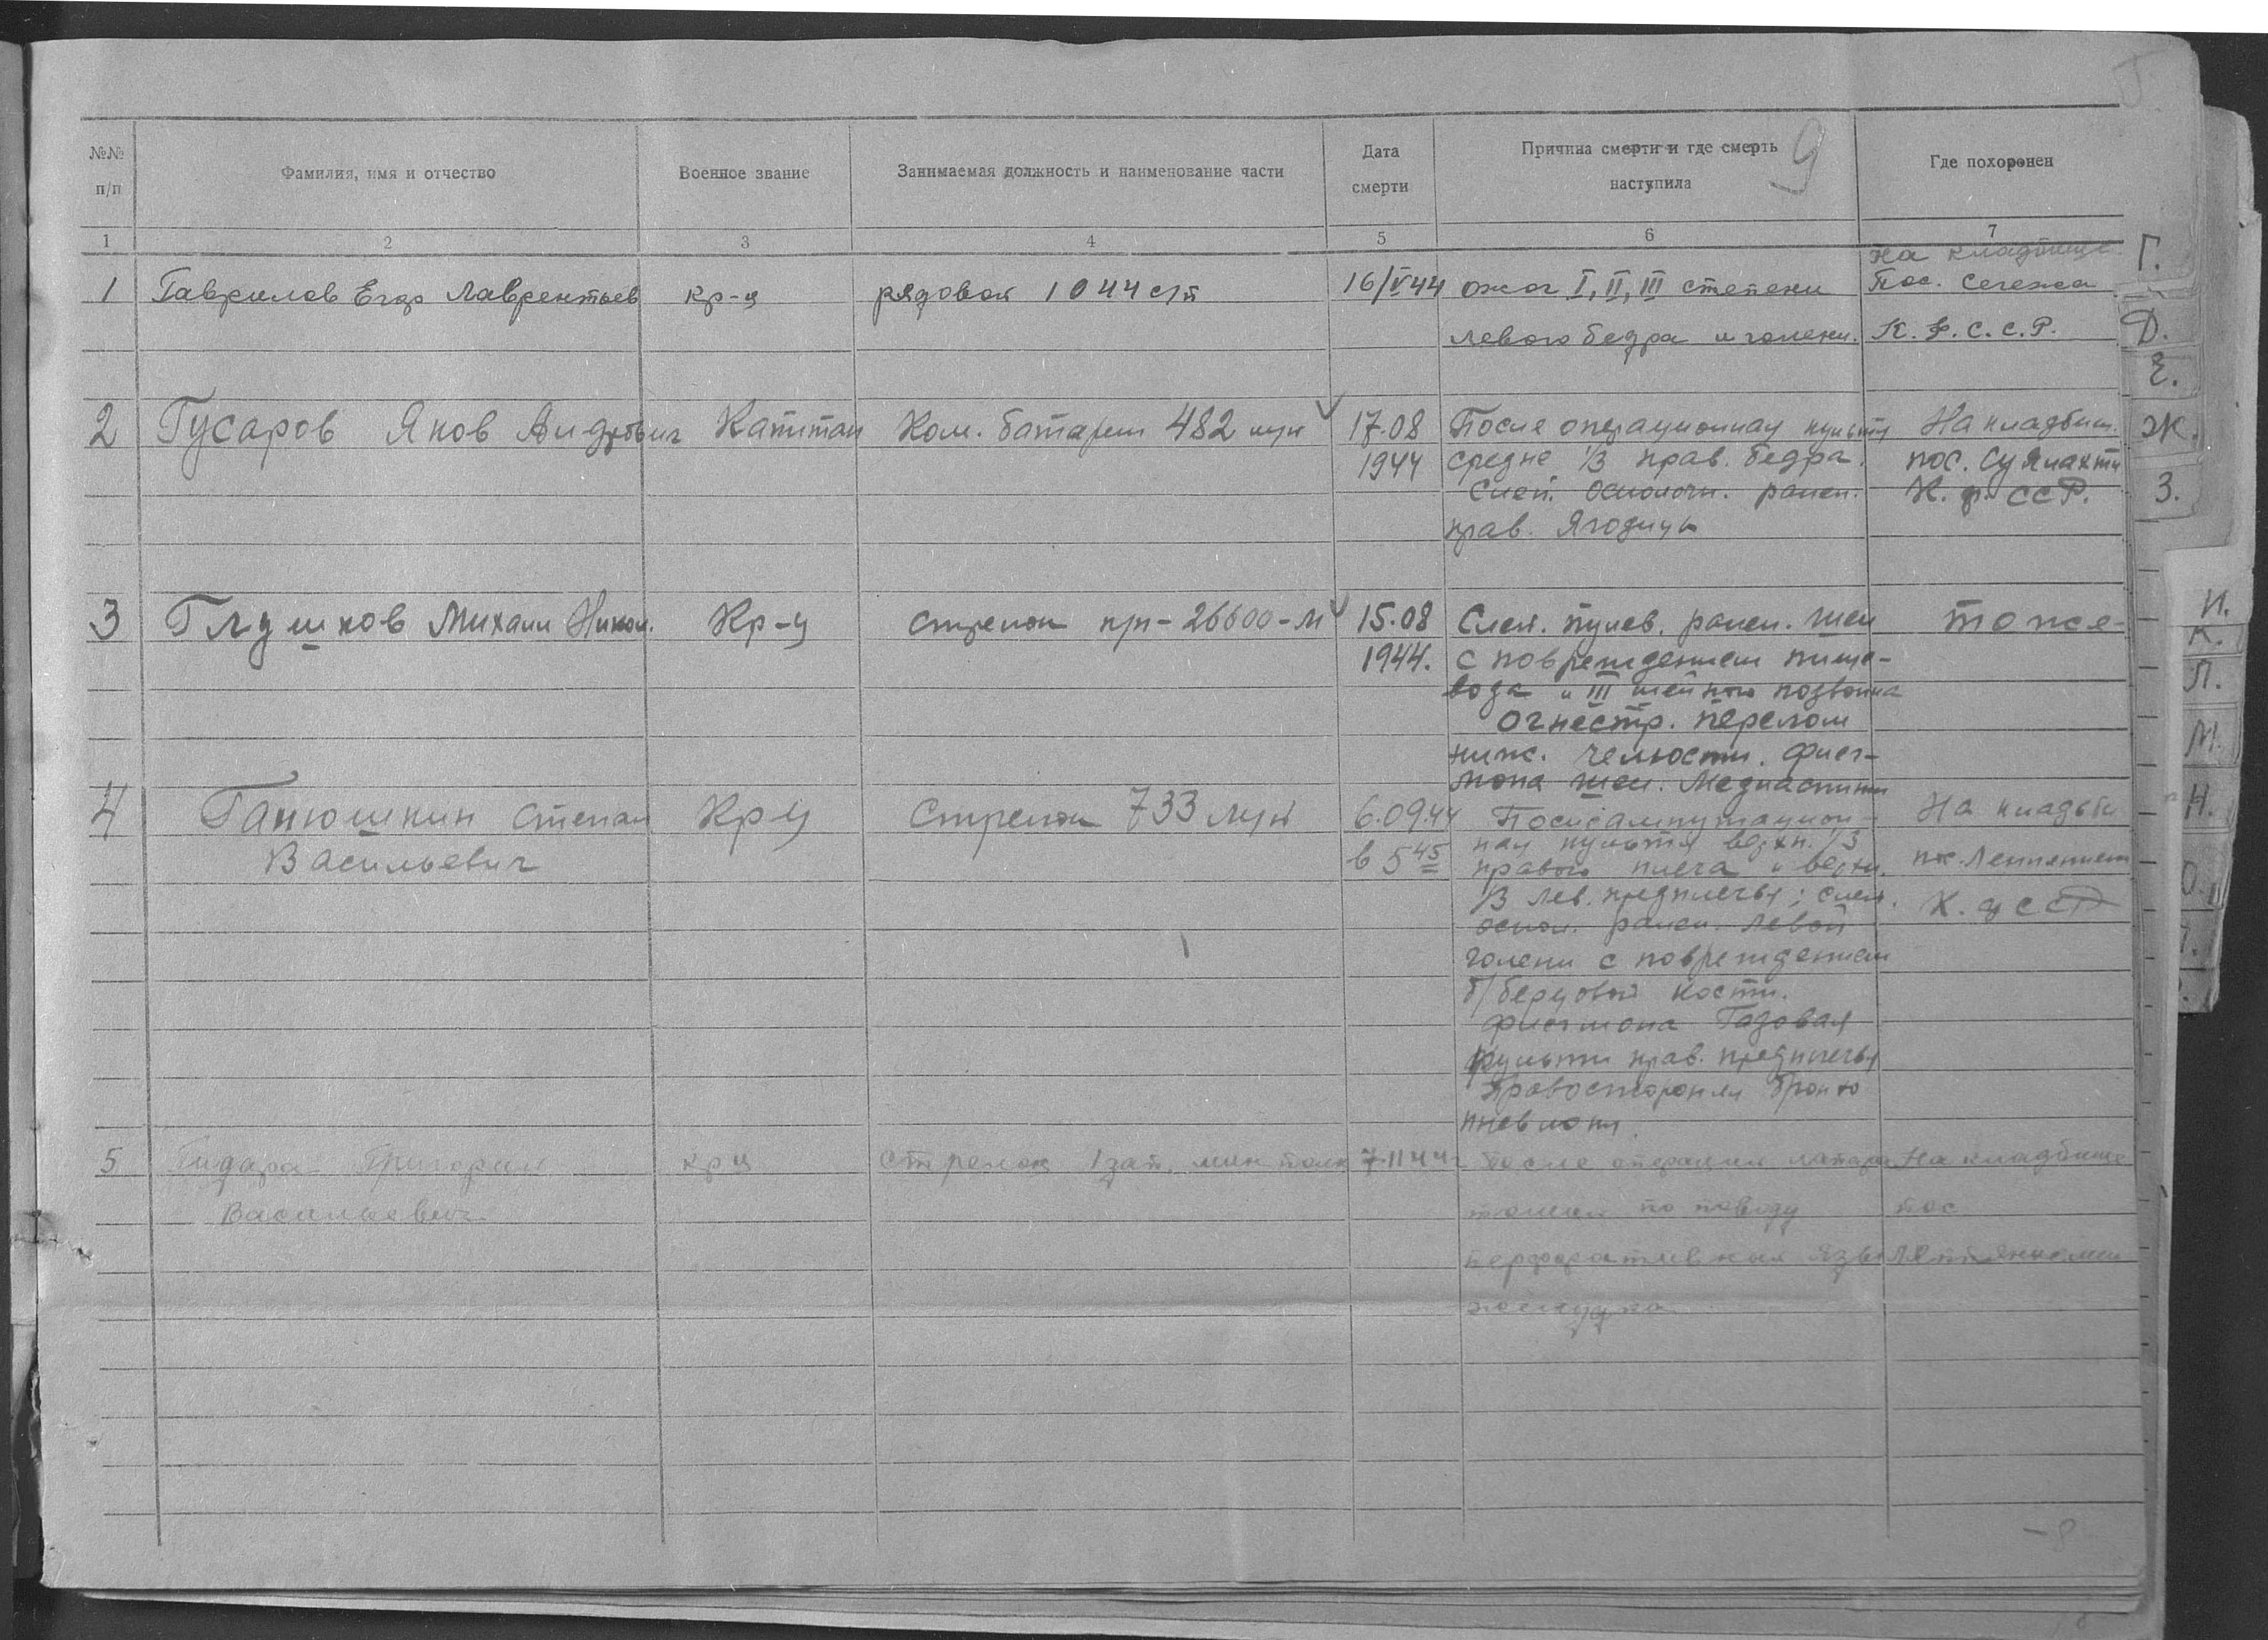 Г
9
№№ п/п
Фамилия, имя и отчество
Военное звание
Занимаемая должность и наименование части
Дата смерти
Причина смерти и где смерть наступила
Где похоронен
1 2 3 4 5 6 7
1 Гаврилов Егор Лаврентьев кр-ц рядовой 1044 с/п 16/V44 ожог I, II, III степени
на кладбище
Пос. Сегежа
левого бедра и голени. К. Ф. С. С. Р.
2 Гусаров Яков Капитан Ком. батареи 482 мп 17.08 После операционная культя На кладбищ.
1944 средне 1/3 прав. бедра. пос.
Слеп. осколочн. ранен. К. Ф. ССР.
прав. Ягодицы
3 Глушков Михаил Никол. Кр-ц стрелок пп-26600-М 15.08 Слеп. пулев. ранен. шеи тоже-
1944. с повреждением пище-
вода и III шейного позвонка
Огнестр. перелом
ниж. челюсти. Флег-
мона шеи. Медиастинит
4 Ганюшкин Степан Кр-ц Стрелок 733 6.09.44 Постампутацион- На кладби
Васильевич в 5 45 ная культя верхн. 1/3
правого плеча и верхн.
1/3 лев. предплечья; слеп. К. Ф ССР
оскол. ранен. левой
голени с повреждением
б/берцовой кости.
Флегмона Газовая
культи прав. предплечья
Правостороняя бронхо
пневмония.
5 Григорий кр-ц стрелок 1 зап. мин полк 7.11 44г после операции лапаро На кладбище
Васильевич томии по поводу пос
перфоративная язва
желудка
Г.
Д.
Е.
Ж.
З.
И.
К.
Л.
М.
Н.
О.